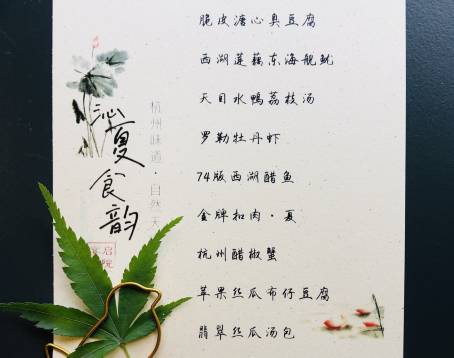 脆皮溏心臭豆腐
西湖莲藕东海舰鱿
天目水鸭荔枝汤
罗勒牡丹虾
74版西湖醋鱼
金牌扣肉·夏
杭州醋椒蟹
苹果丝瓜布仔豆腐
翡翠丝瓜汤包
沁夏食韵
杭州味道·自然天